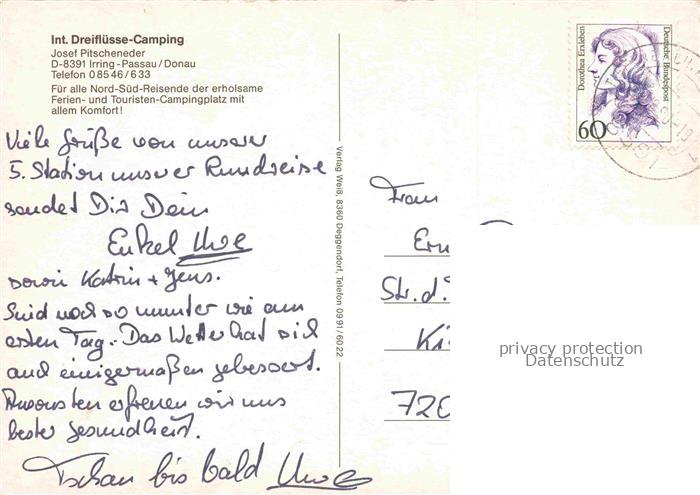 Int. Dreiflüsse-Camping
Josef Pitscheneder
D-8391 Irring-Passau/Donau
Telefon 0 85 46/6 33
Für alle Nord-Süd-Reisende der erholsame
Ferien- und Touristen-Campingplatz mit
allem Komfort!
Viele Grüße von unserer
5. Station unserer Rundreise
sendet Dir Dein
Enkel Uwe
sowie Katrin + Jens.
Sind noch so munter wie am
ersten Tag. Das Wetter hat sich
auch einigermaßen gebessert.
Ansonsten erfreuen wir uns
bester Gesundheit.
Tschau bis bald Uwe
Verlag Weiß, 8360 Deggendorf, Telefon 09 91/60 22
Dorothea Erxleben
Deutsche Bundespost
60
Frau
Str. d.
720
privacy protection
Datenschutz